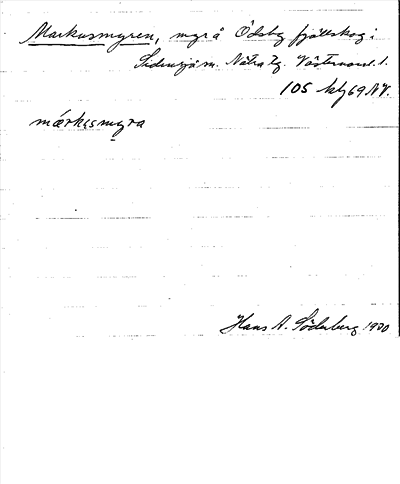 Markusmyren, myr å Ödsby fjällskog i
Sidensjö sn. Nätra tg. Västernorrl. l.
105 kbl 69 NV.
märkusmyra
Hans A. Söderberg 1920